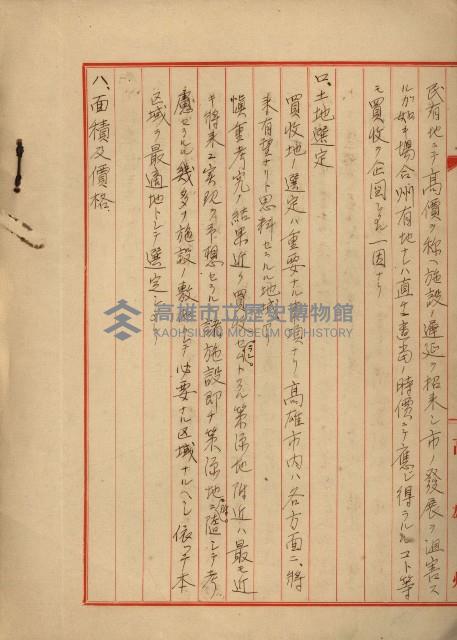 民有地ニテ高價ヲ称ヘ施設ノ遅延ヲ招来シ市ノ発展ヲ阻害ス
ルガ如キ場合州有地ナレハ直チニ適当ノ時價ニテ應じ得ラルルコト等
モ買收ヲ企図シタル一因ナリ
ロ、土地選定
買收地ノ選定ハ重要ナル事項ナリ高雄市内ハ各方面ニ将
来有望ナリト思料セラルル地域
慎重考究ノ結果近ク買收セムトスル築港地附近ハ最モ近
キ将来ニ実現ヲ予想セラルル諸施設即チ築港地ニ随シテ考
慮セラルル幾多ノ施設ノ敷 シテ必要ナル区域ナルヘシ依ツテ本
区域ヲ最適地トシテ選定シ
ハ、面積及價格
高雄市立歷史博物館
KAOHSIUNG MUSEUM OF HISTORY
高雄州